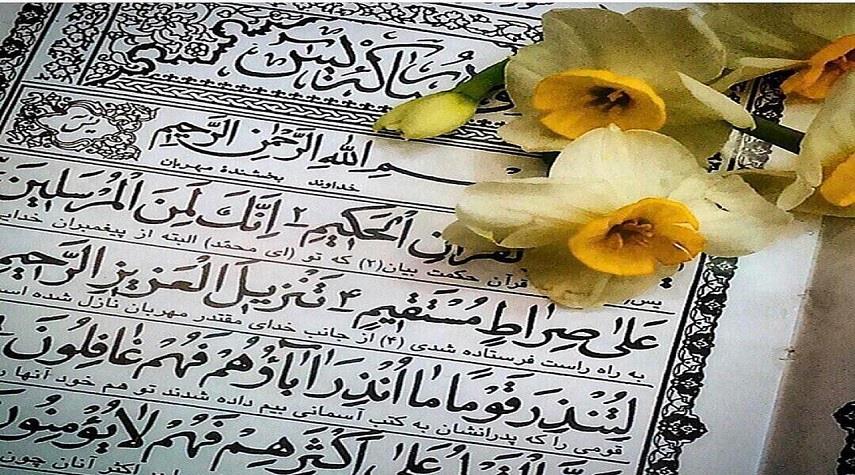 مبارکه یس
یس
ـسم الله الرَّحْمٰنِ الرَّحیمِ
خداوند بخشندهٔ مهربان
لقُرْانِ الْحَكیمِ ۲ اِنَّكَ لَمِنَ الْمُرْسَلینَ
یس/ قرآن حکمت بیان(۲) که تو (ای محمّد) البته از پیغمبران خدایی
عَلیٰ صِراطٍ مُسْتَقیمٍ ۴ تَنْزیلَ الْعَزیزِ الرَّحیمِ
به راه راست فرستاده شدی (۴) از جانب خدای مقتدر مهربان نازل شده است
لِتُنْذِرَ قَوْمًا ما اُنْذِرَ اٰباؤُهُمْ فَهُمْ غافِلُونَ
قومی را که پدرانشان به کتب آسمانی بیم داده شدند تو هم خود آنها را
الْقَوْلُ عَلیٰ اَكْثَرِهِمْ فَهُمْ لا یُؤْمِنُونَ
اکثر آنان چون